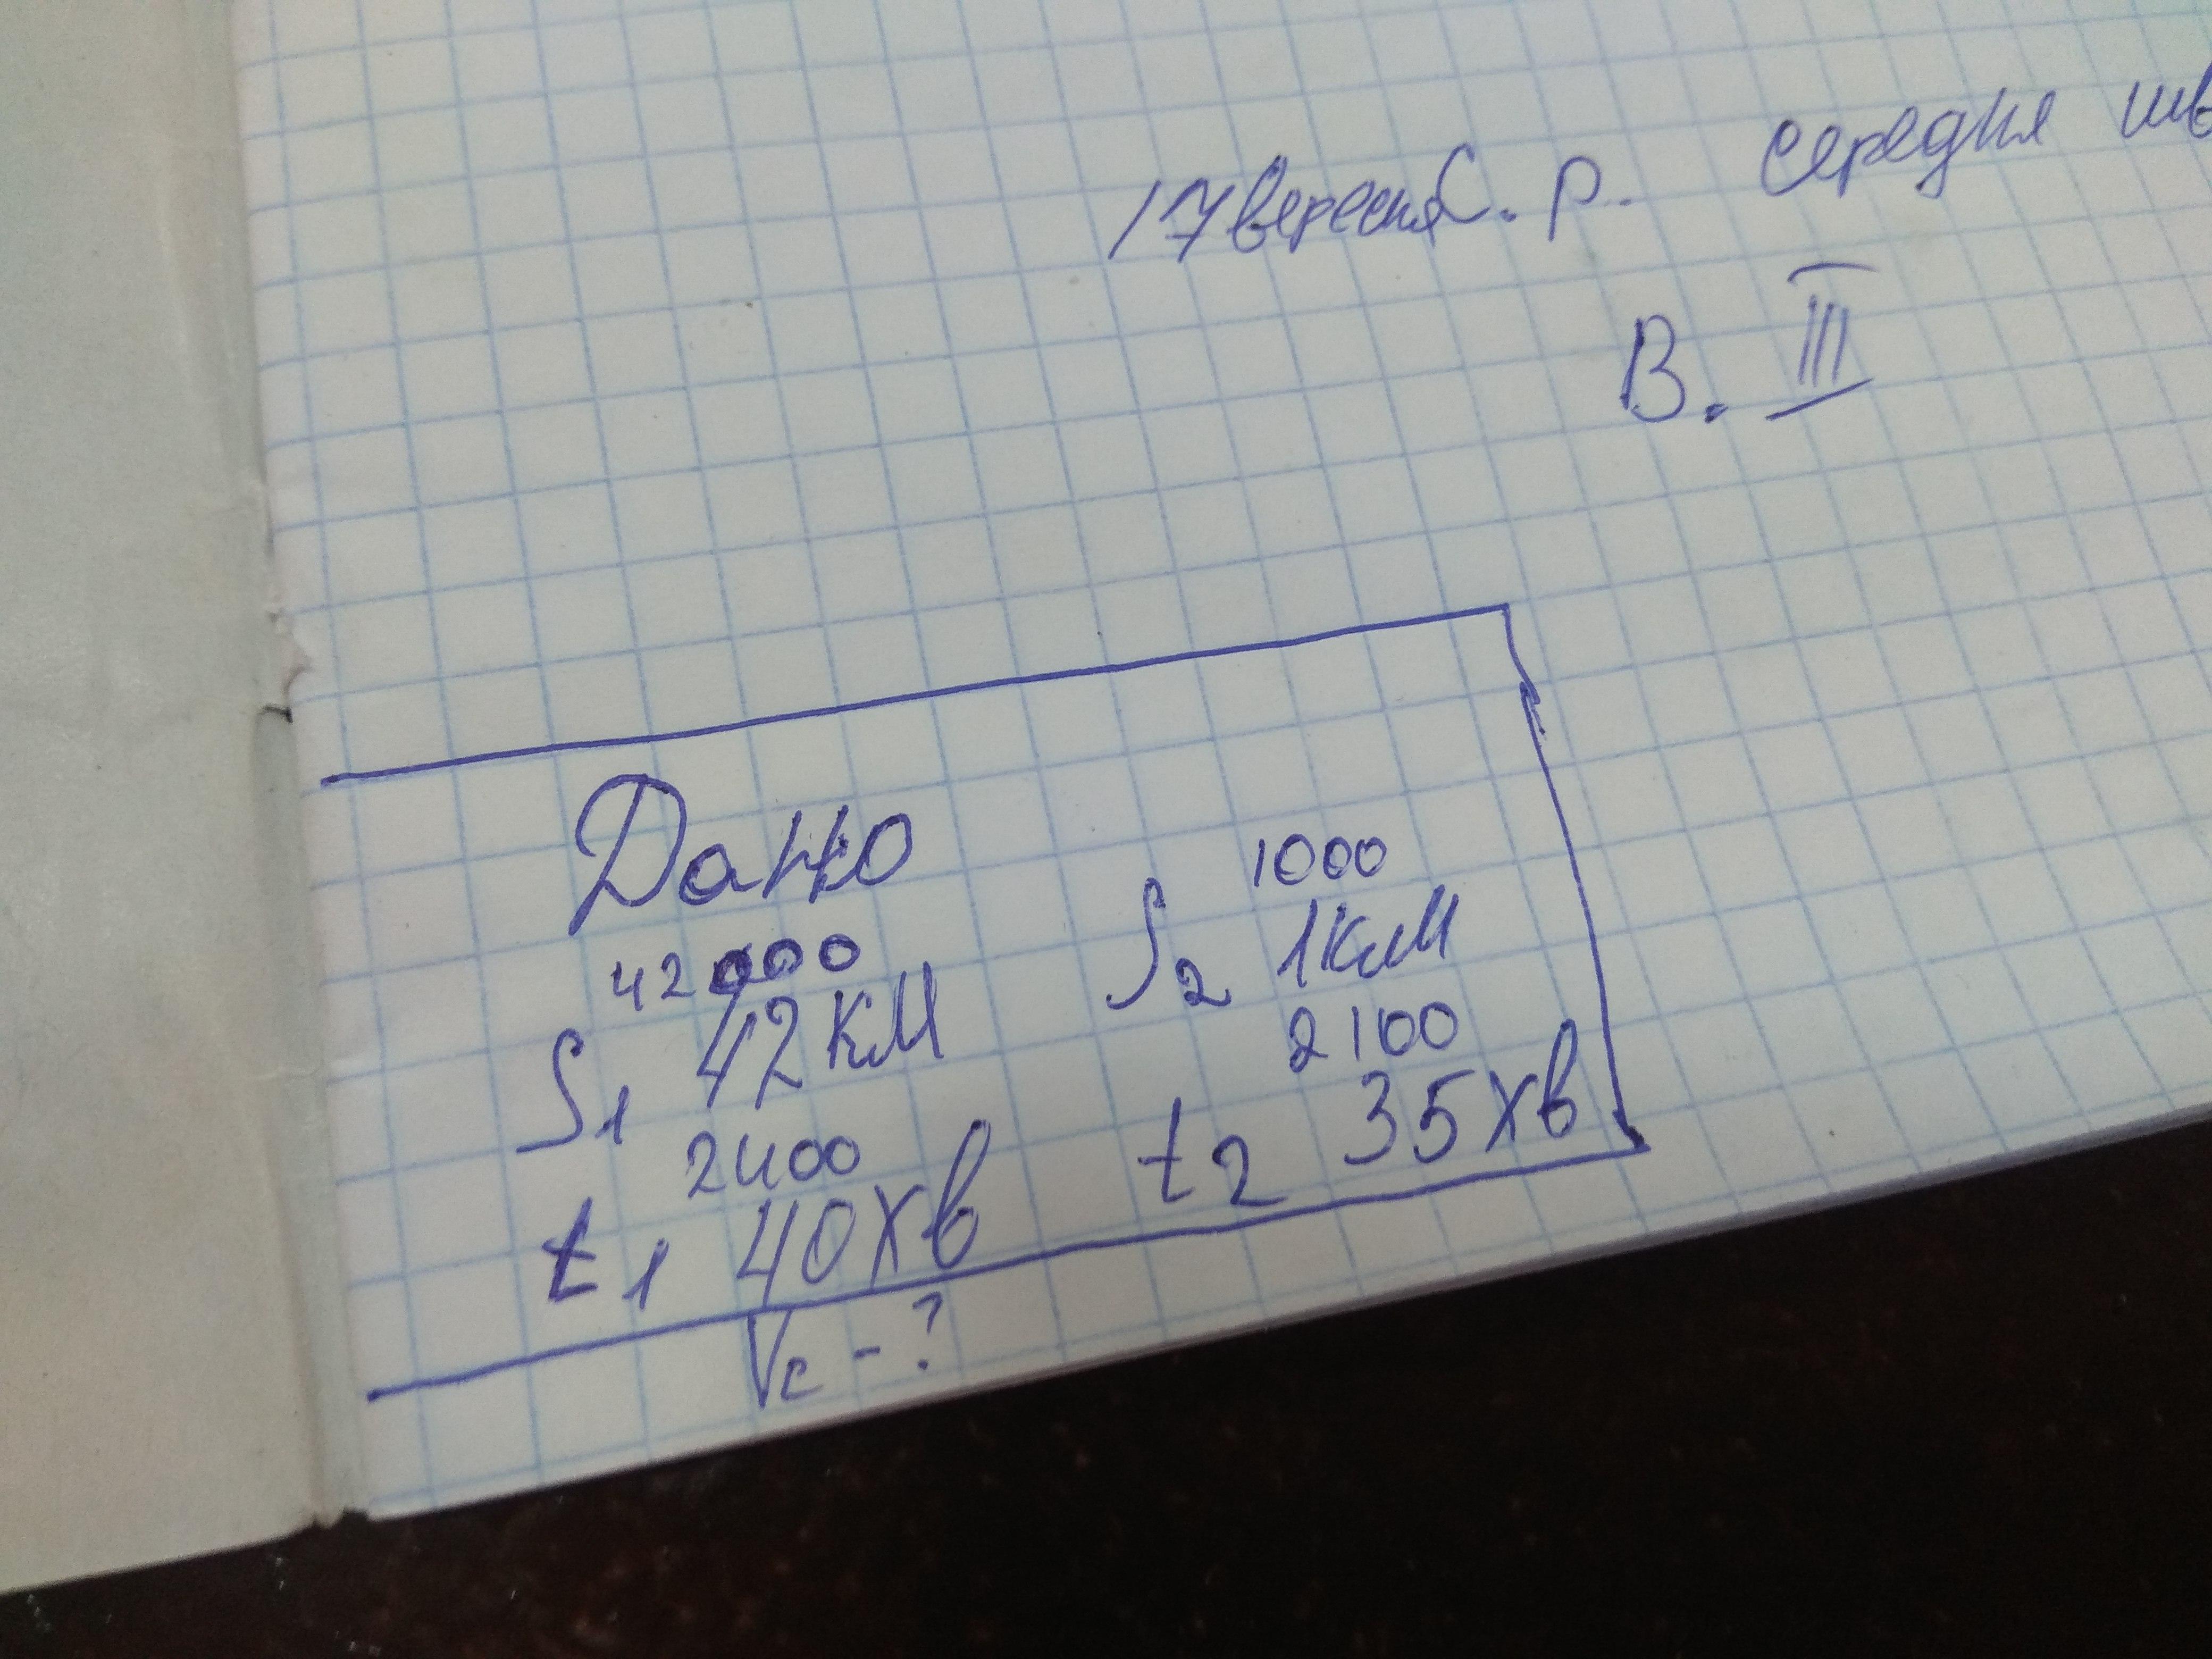 17 вересня С. р. середня шв
В. III
Дано
42000
S1 42 км
2400
t1 40 хв
1000
S2 1 км
2100
t2 35 хв
Vc - ?